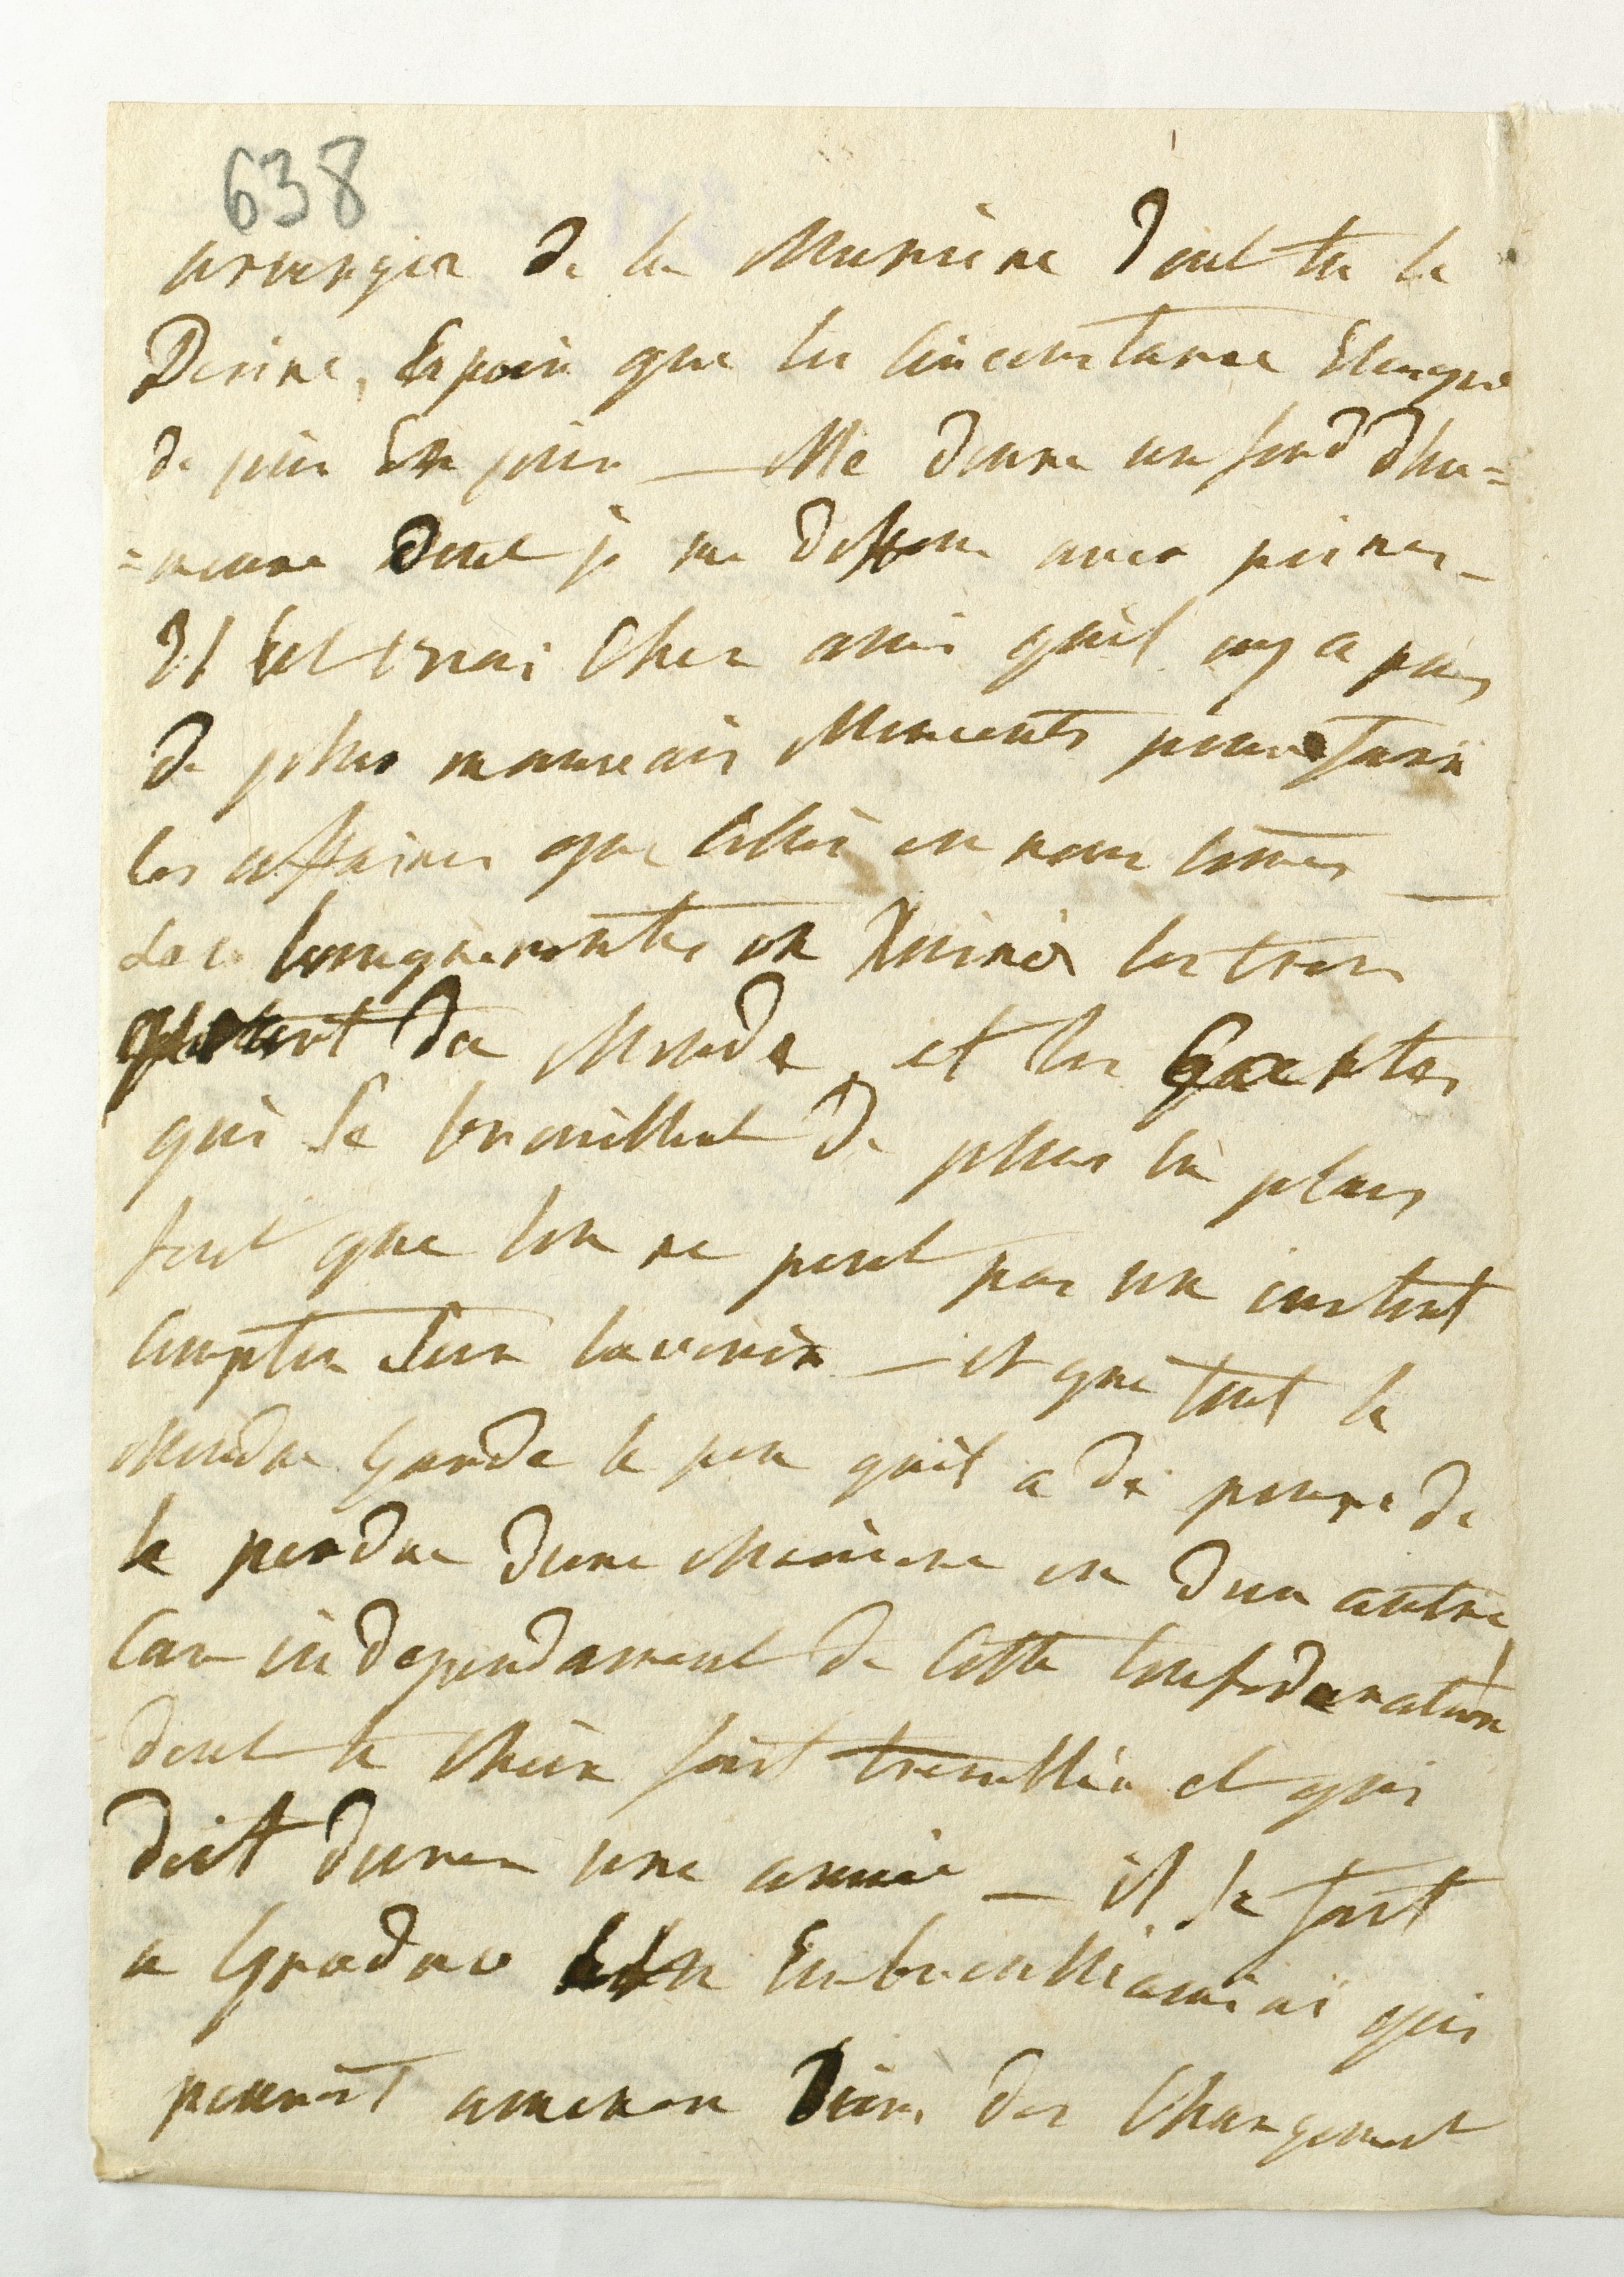 638
arranger de la Maniere dont tu le
Desire, Espoir que la circonstance Eloigne
de jour En jour — Me donne un fond dhu=
=meure Dont je me deffene avec peines —
Il Est vrai Cher ami quil ny a pas
de plus mauvais Moments pour faire
les affaires que Celui ou nous somes —
on Ruiné les trois
quart du Monde, et les Cartes
qui Se brouillent de plus En plus
font que lon ne peut pas un instant
Compter Sur lavenir — et que tout le
Monde Garde le peu quil a de peure de
le perdre dune Maniere ou dun autre
Car independament de Cette Confederation
dont le Chien fait et qui
doit durer une année — il se fait
a Grodno un Embrouilliamini qui
peuvent amener Bien des Changement